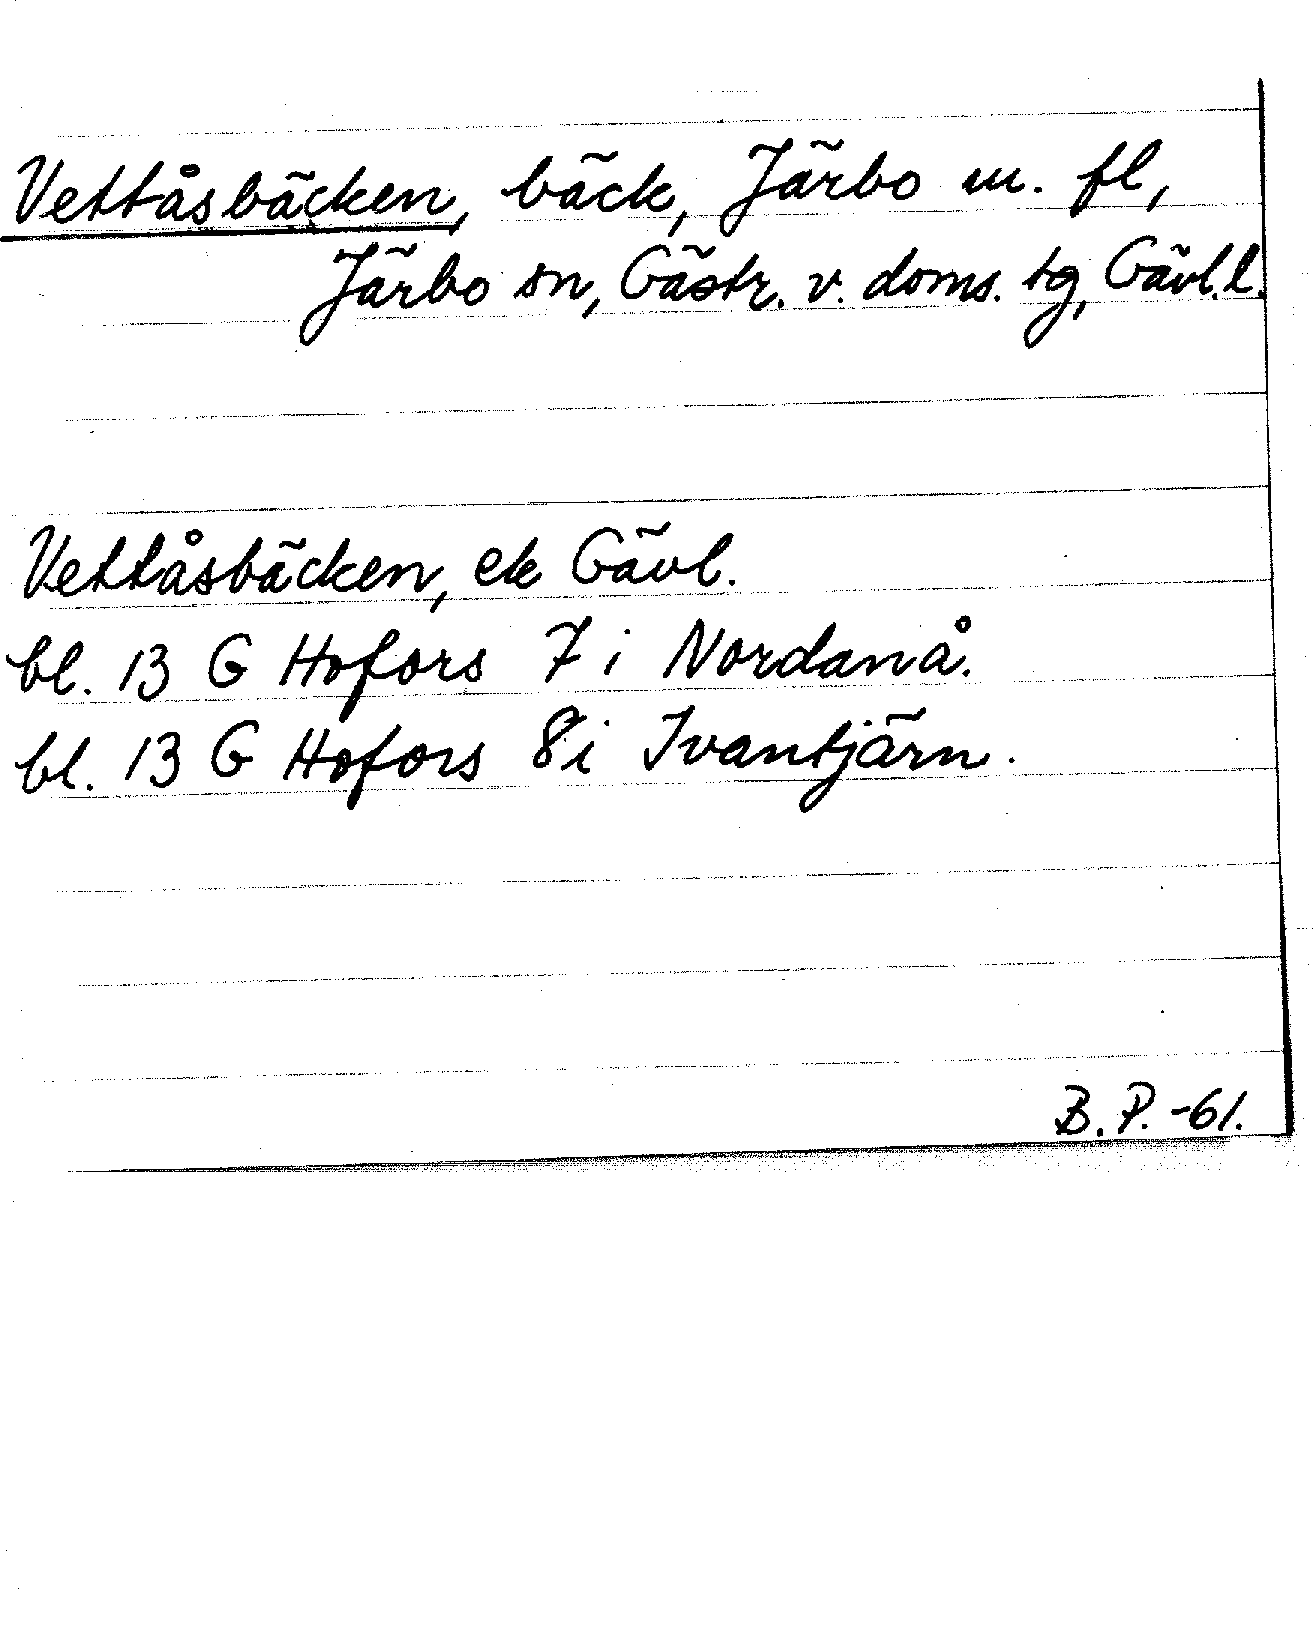 Vettåsbäcken, bäck, Järbo m. fl,
Järbo sn, Gästr. v. doms. tg, Gävl. l.
Vettåsbäcken, ek Gävl.
bl. 13 G Hofors 7 i Nordanå.
bl. 13 G Hofors 8 i Ivantjärn.
B. P. -61.